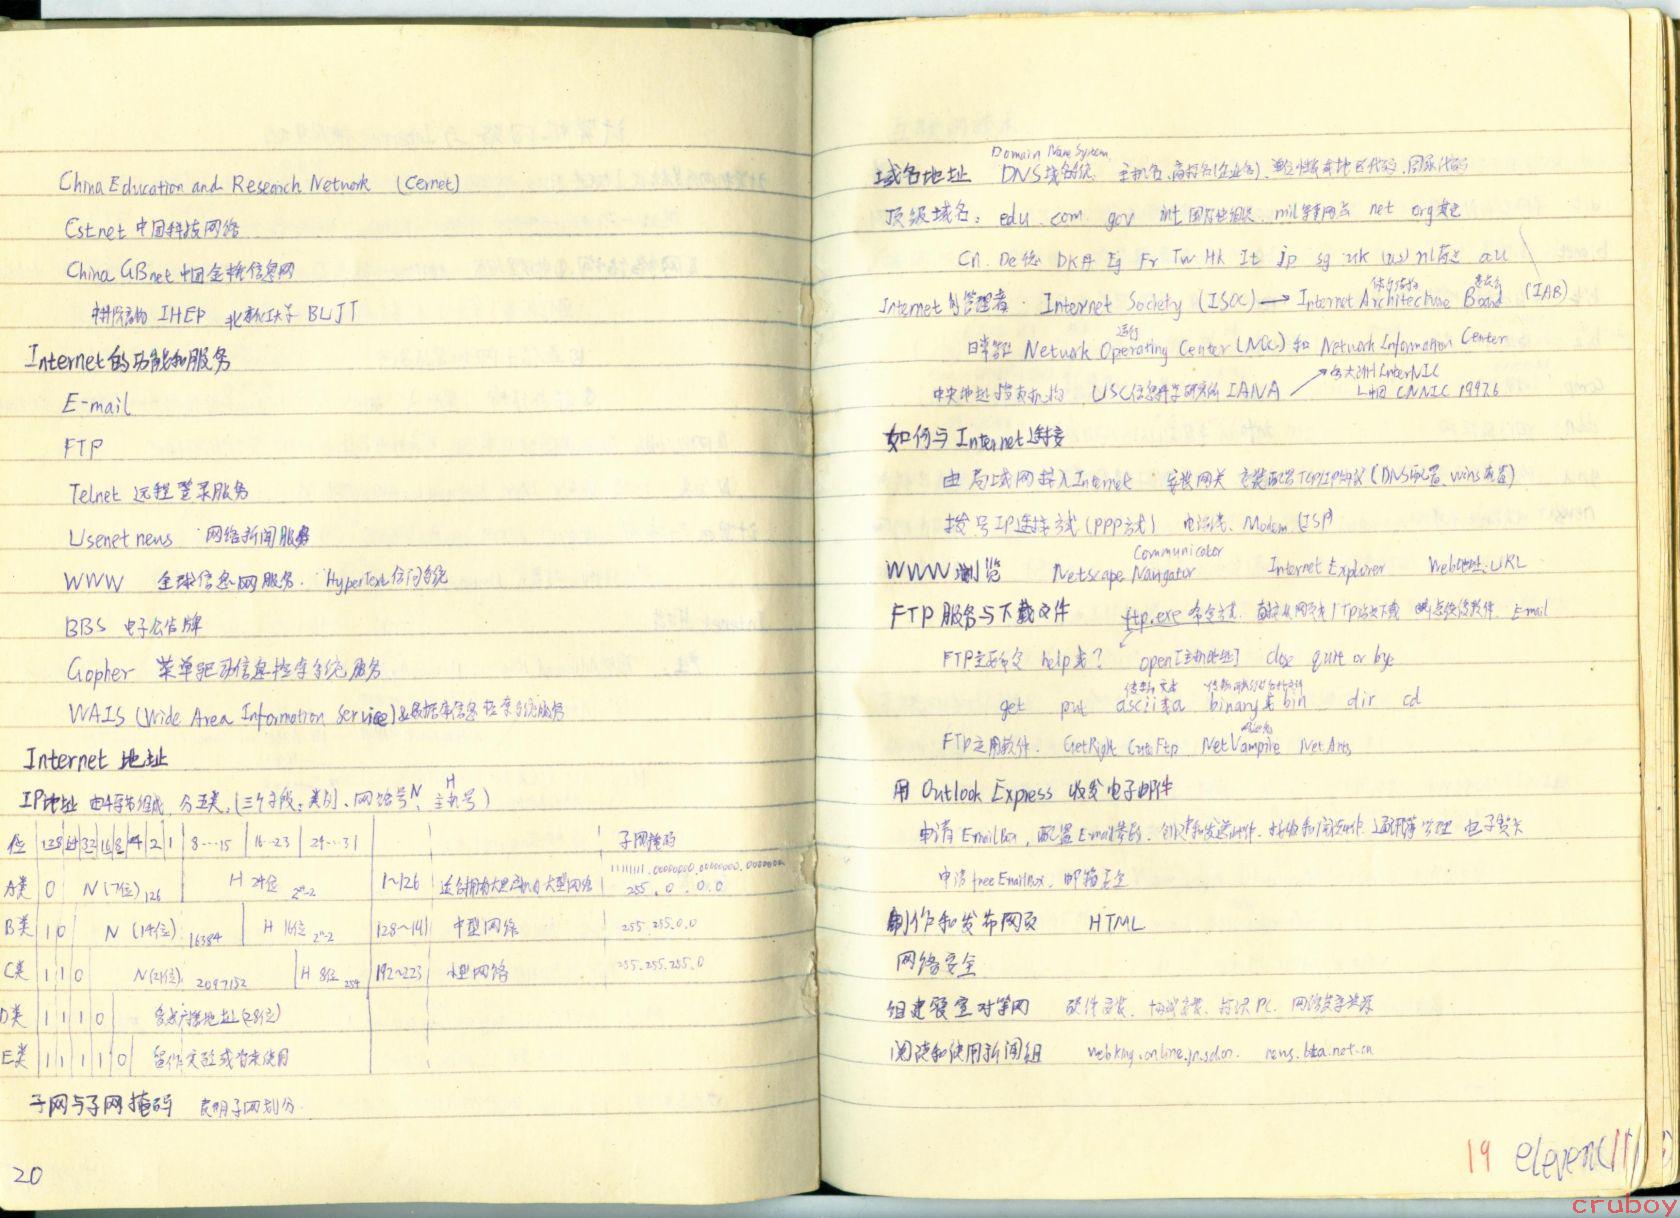 China Education and Research Network (Cernet)
Cstnet 中国科技网络
China GBnet 中国金桥信息网
IHEP BLJT
Internet的功能和服务
E-mail
FTP
Telnet 远程登录服务
Usenet news 网络新闻服务
WWW 全球信息网服务. HyperText 访问系统
BBS 电子公告牌
Gopher 菜单驱动信息检索系统服务
WAIS (Wide Area Information Service) 数据库信息检索系统服务
Internet 地址
IP地址 由4字节组成, 分五类, (三个字段: 类别、网络号N、主机号H)
位 128 64 32 16 8 4 2 1 8…15 16-23 24…31 子网掩码
A类 0 N (7位) 126 H 24位 2ⁿ-2 1~126 适合拥有大量主机的大型网络 11111111.00000000.00000000.00000000
255.0.0.0
B类 1 0 N (14位) 16384 H 16位 2ⁿ-2 128~191 中型网络 255.255.0.0
C类 1 1 0 N (21位) 2097152 H 8位 254 192~223 小型网络 255.255.255.0
D类 1 1 1 0 多点广播地址(28位)
E类 1 1 1 1 0 留作实验或将来使用
子网与子网掩码 表明子网划分.
20
Domain Name System
域名地址 DNS域名系统 主机名、 国家代码
顶级域名: edu . com . gov int 国际性组织. mil 军事网点 net org 其它
Cn. De德 DK丹 Eg Fr Tw Hk It jp sg uk (us) nl荷兰 au
体系结构 委员会
Internet的管理者. Internet Society (ISOC) → Internet Architecture Board (IAB)
运行
日常管理 Network Operating Center (NOC) 和 Network Information Center
各大洲 InterNIC
中央地址 USC信息科学研究所 IANA 中国 CNNIC 1997.6
如何与 Internet 连接
由局域网接入Internet 安装网关 安装配置TCP/IP协议(DNS配置、wins配置)
拨号IP连接方式(PPP方式) 电话线、Modem. (ISP)
Communicator
WWW 浏览 Netscape Navigator Internet Explorer Web地址: URL
FTP 服务与下载文件 ftp.exe 命令方式. 直接从网页或FTP站点下载 断点续传软件. Email
FTP主要命令 help或? open[主机地址] close quit or bye
传输文本
get put ascii或a binary或bin dir cd
FTP应用软件. GetRight CuteFtp NetVampire NetAnts
用 Outlook Express 收发电子邮件
申请EmailBox, 配置Email参数. 创建和发送邮件. 接收和阅读邮件. 通讯簿管理 电子贺卡
申请freeEmailBox, 邮箱安全
制作和发布网页 HTML
网络安全
组建寝室对等网 硬件安装. 协议安装. 标识PC. 网络共享资源
阅读和使用新闻组 news.bta.net.cn
19 eleven(11)
cruboy